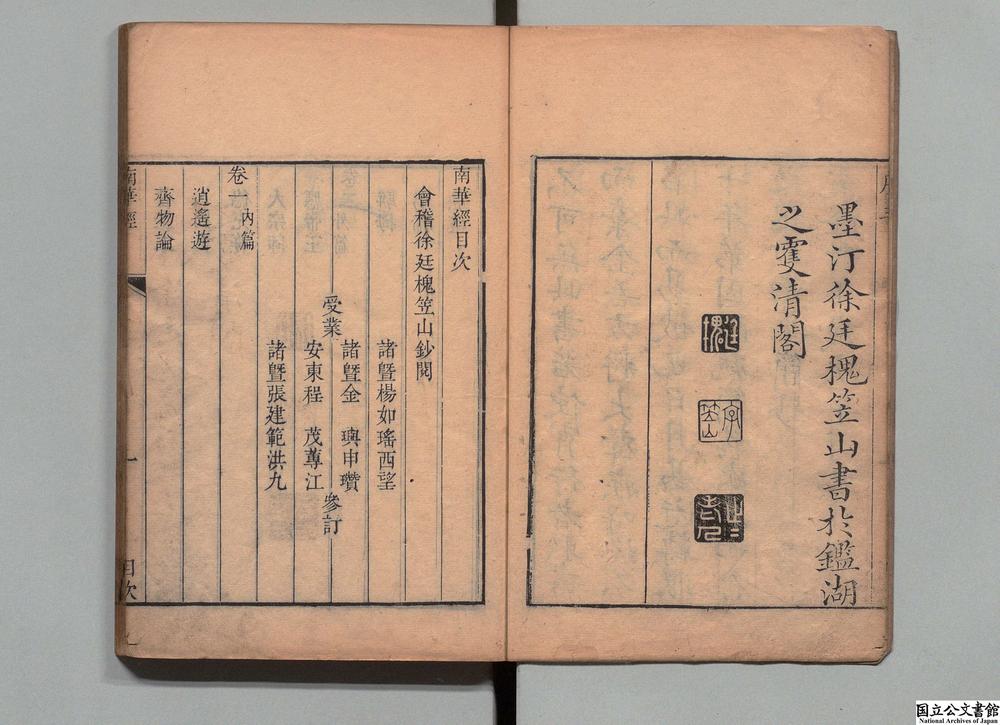 墨汀徐廷槐笠山書於鑑湖
之雙清閣
廷槐
字笠山
南華經目次
會稽徐廷槐笠山鈔閱
諸暨楊如瑤西望
受業
諸暨金 璵申瓚
參訂
安東程 茂蓴江
諸暨張建範洪九
卷一內篇
逍遙遊
齊物論
南華經
目次
一
国立公文書館
National Archives of Japan